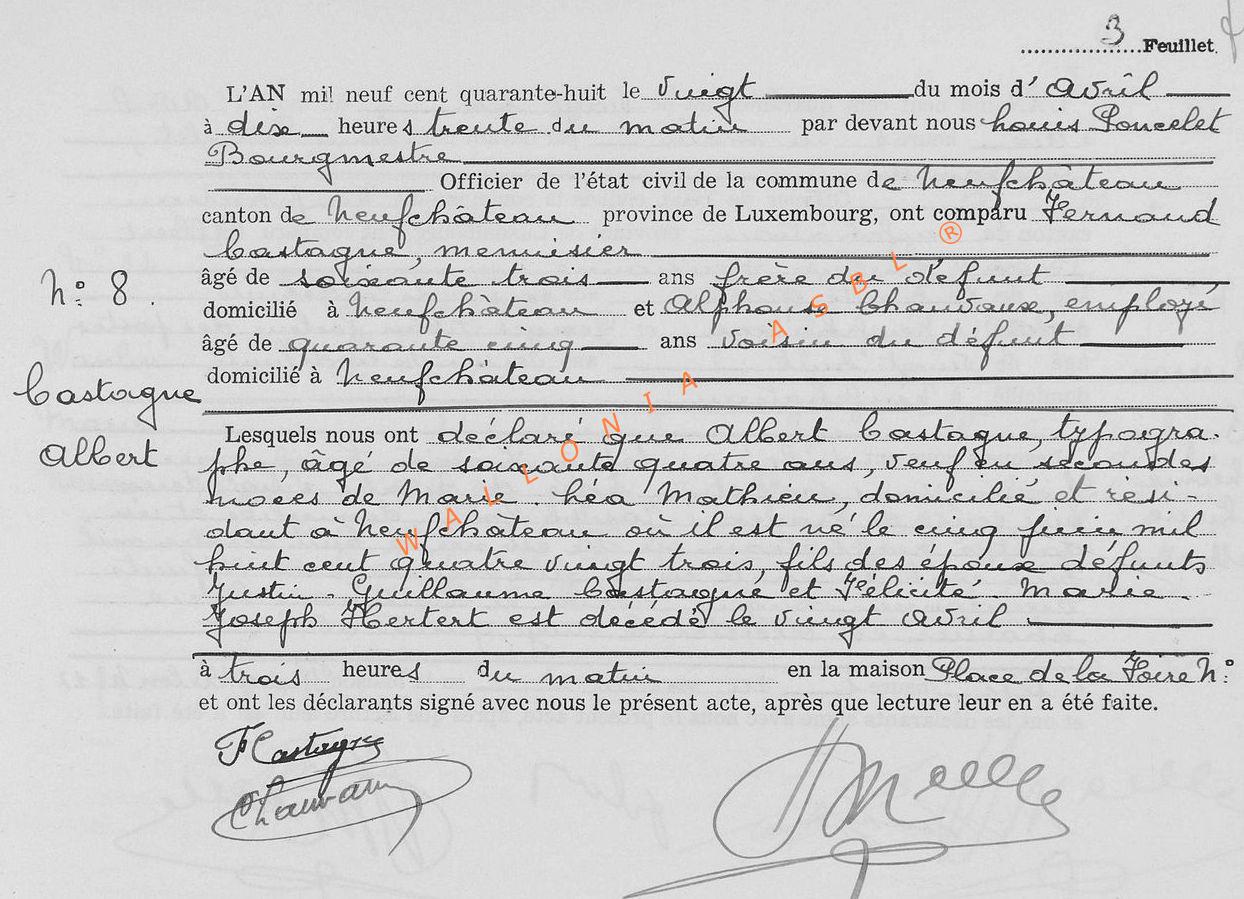 3 Feuillet.
L'AN mil neuf cent quarante-huit le vingt du mois d' avril
à dix heures trente du matin par devant nous Louis Poncelet
Bourgmestre
Officier de l'état civil de la commune de Neufchâteau
canton de Neufchâteau province de Luxembourg, ont comparu Fernand
Castagne, menuisier
âgé de soixante trois ans frère du défunt
N° 8.
domicilié à Neufchâteau et Alphonse Chauvaux, employé
âgé de quarante cinq ans voisin du défunt
domicilié à Neufchâteau
Castagne
Albert
Lesquels nous ont déclaré que Albert Castagne, typogra-
phe, âgé de soixante quatre ans, veuf en secondes
noces de Marie Léa Mathieu, domicilié et rési-
dant à Neufchâteau où il est né le cinq juin mil
huit cent quatre vingt trois, fils des époux défunts
Justin-Guillaume Castagne et Félicité-Marie-
Joseph Hertert est décédé le vingt avril
à trois heures du matin en la maison Place de la Foire N°
et ont les déclarants signé avec nous le présent acte, après que lecture leur en a été faite.
F Castagne
Chauvaux
WALLONIA ASBL ®